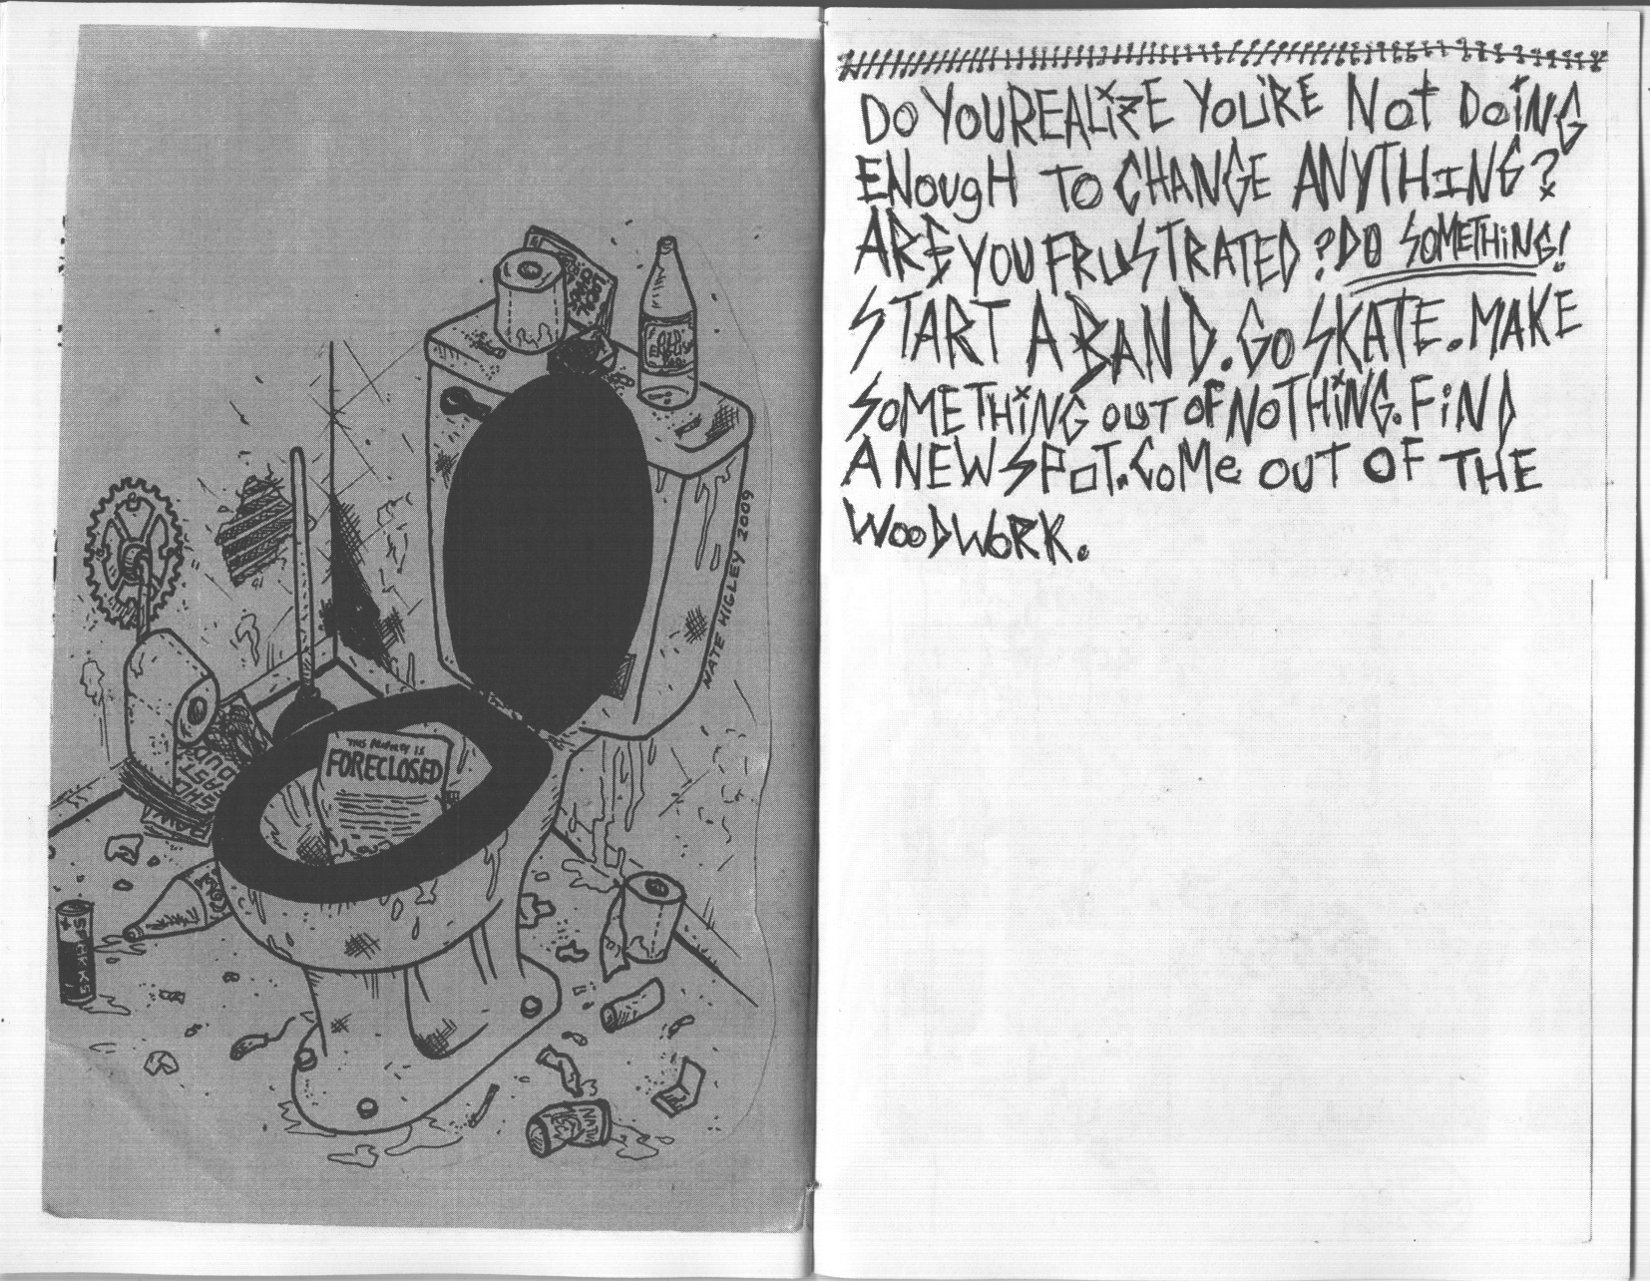 OLD
NATE HIGLEY 2009
THIS PROPERTY IS
FORECLOSED
DO YOU REALIZE YOU'RE NOT DOING
ENOUgH TO CHANGE ANYTHING?
ARE YOU FRUSTRATED? DO SOMETHING!
START A BAND. GO SKATE. MAKE
SOMETHING OUT OF NOTHING. FIND
A NEW SPOT. COMe OUT OF THE
WOODWORK.